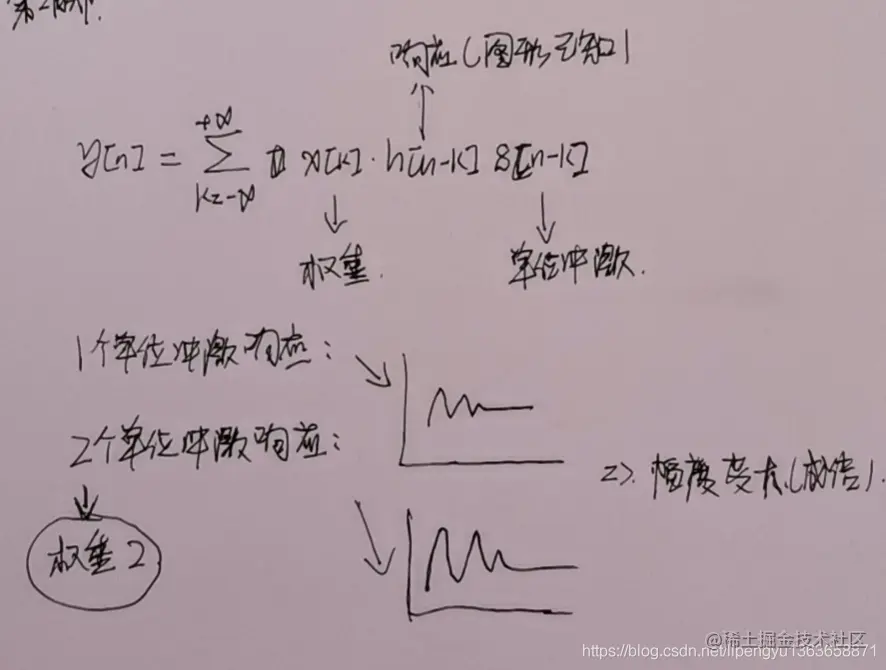 第2部分.
响应(图形已知)
y[n] = \sum_{k=-∞}^{+∞} x[k] · h[n-k] δ[n-k]
权重.
单位冲激.
1个单位冲激响应:
2个单位冲激响应:
=> 幅度变大(成倍).
权重2
@稀土掘金技术社区
https://blog.csdn.net/lipengyu1363658871